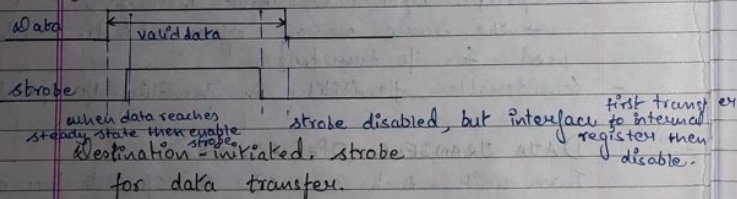 Data
valid data
strobe
when data reaches
steady state then enable
strobe.
strobe disabled, but interface to internal
first transfer
register then
disable.
Destination - initiated. strobe
for data transfer.